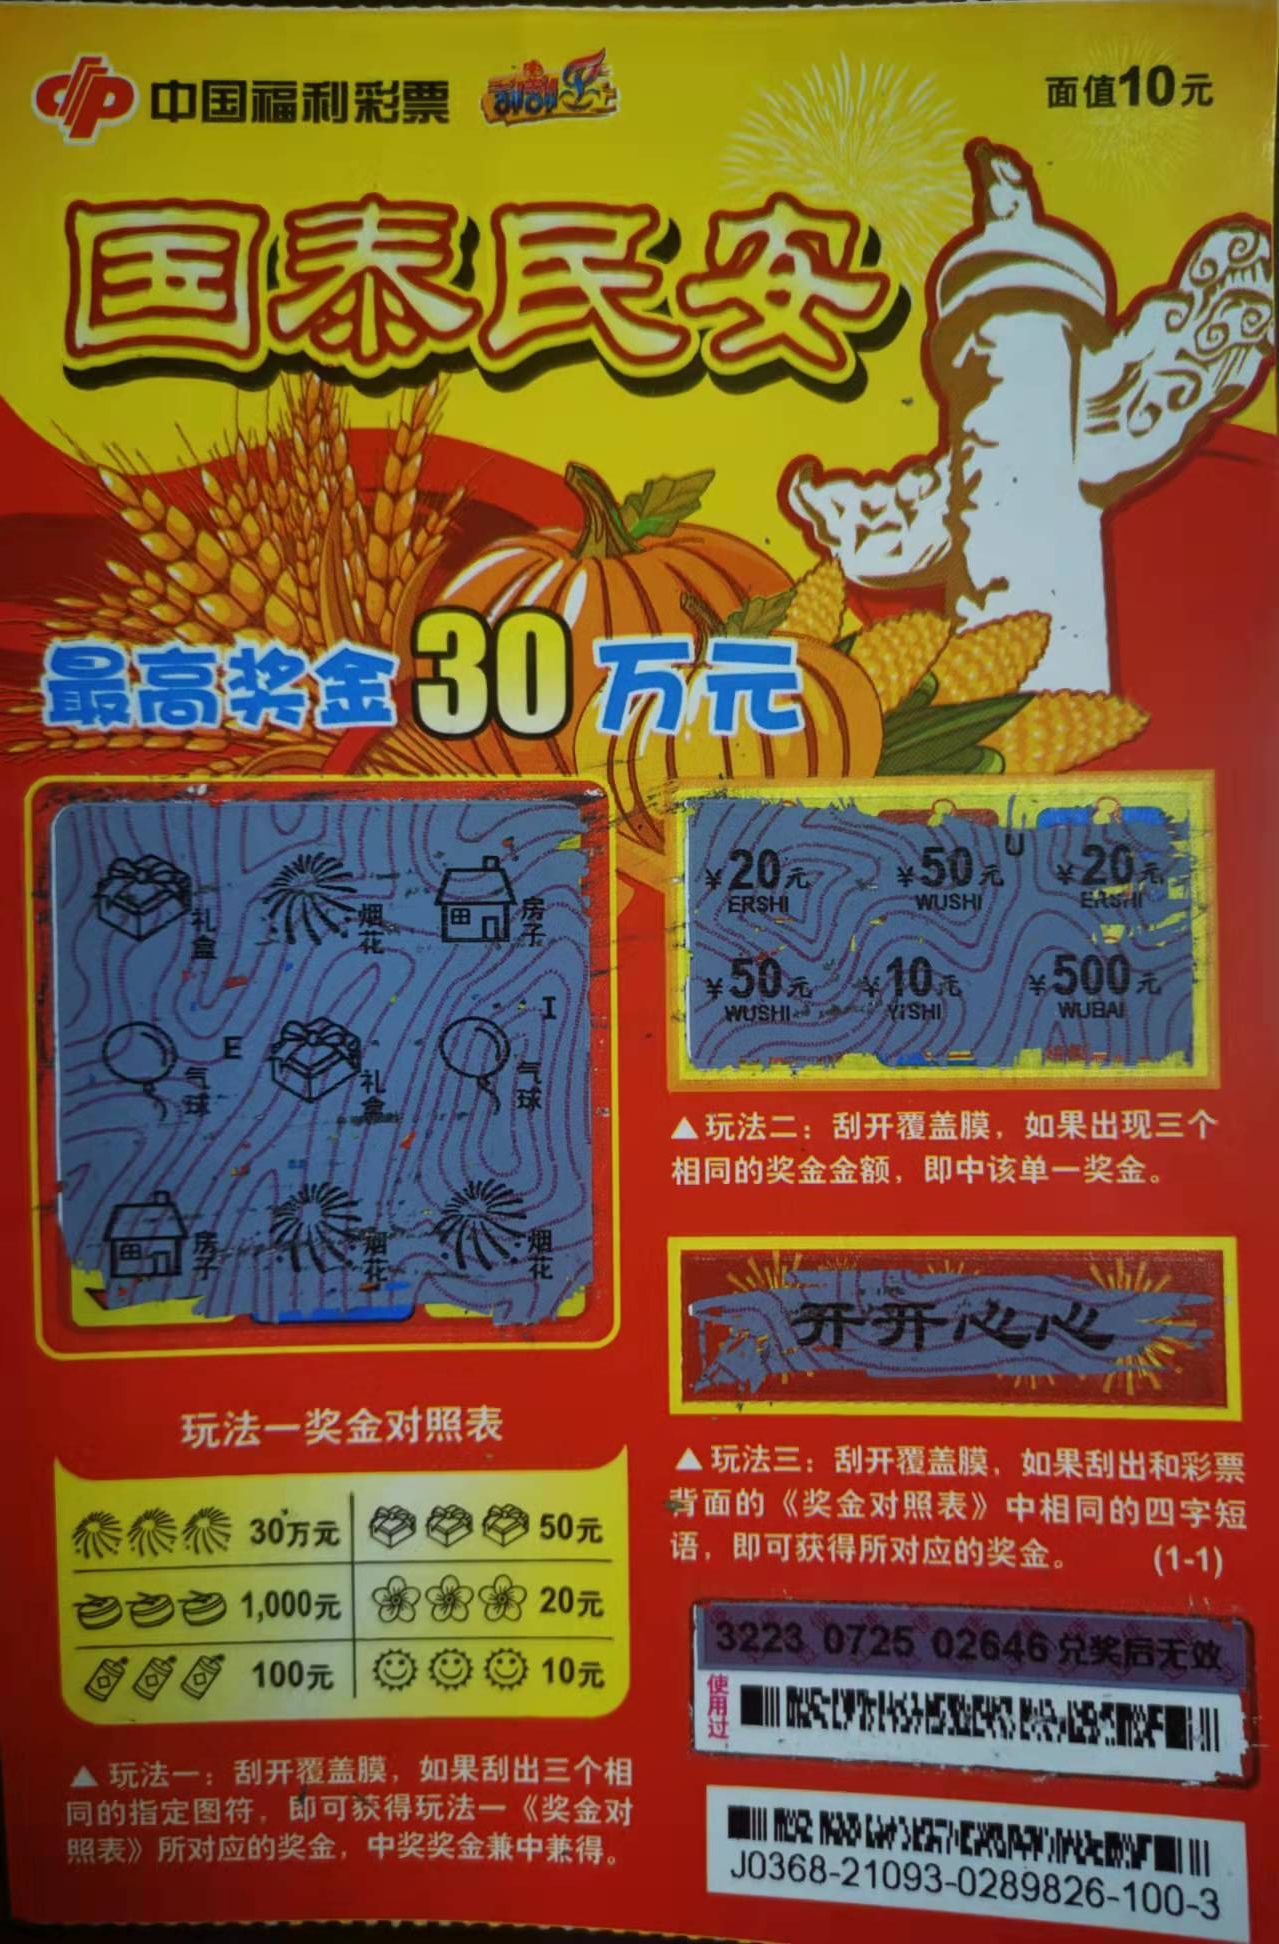 中国福利彩票 刮刮乐
面值10元
国泰民安
最高奖金30万元
礼盒 烟花 房子
I
气球 E 礼盒 气球
房子 烟花 烟花
U
¥20元 ¥50元 ¥20元
ERSHI WUSHI ERSHI
¥50元 ¥10元 ¥500元
WUSHI YISHI WUBAI
▲玩法二：刮开覆盖膜，如果出现三个
相同的奖金金额，即中该单一奖金。
开开心心
▲玩法三：刮开覆盖膜，如果刮出和彩票
背面的《奖金对照表》中相同的四字短
语，即可获得所对应的奖金。 (1-1)
玩法一奖金对照表
30万元 50元
1,000元 20元
100元 10元
▲玩法一：刮开覆盖膜，如果刮出三个相
同的指定图符，即可获得玩法一《奖金对
照表》所对应的奖金，中奖奖金兼中兼得。
3223 0725 02646 兑奖后无效
使用过
J0368-21093-0289826-100-3